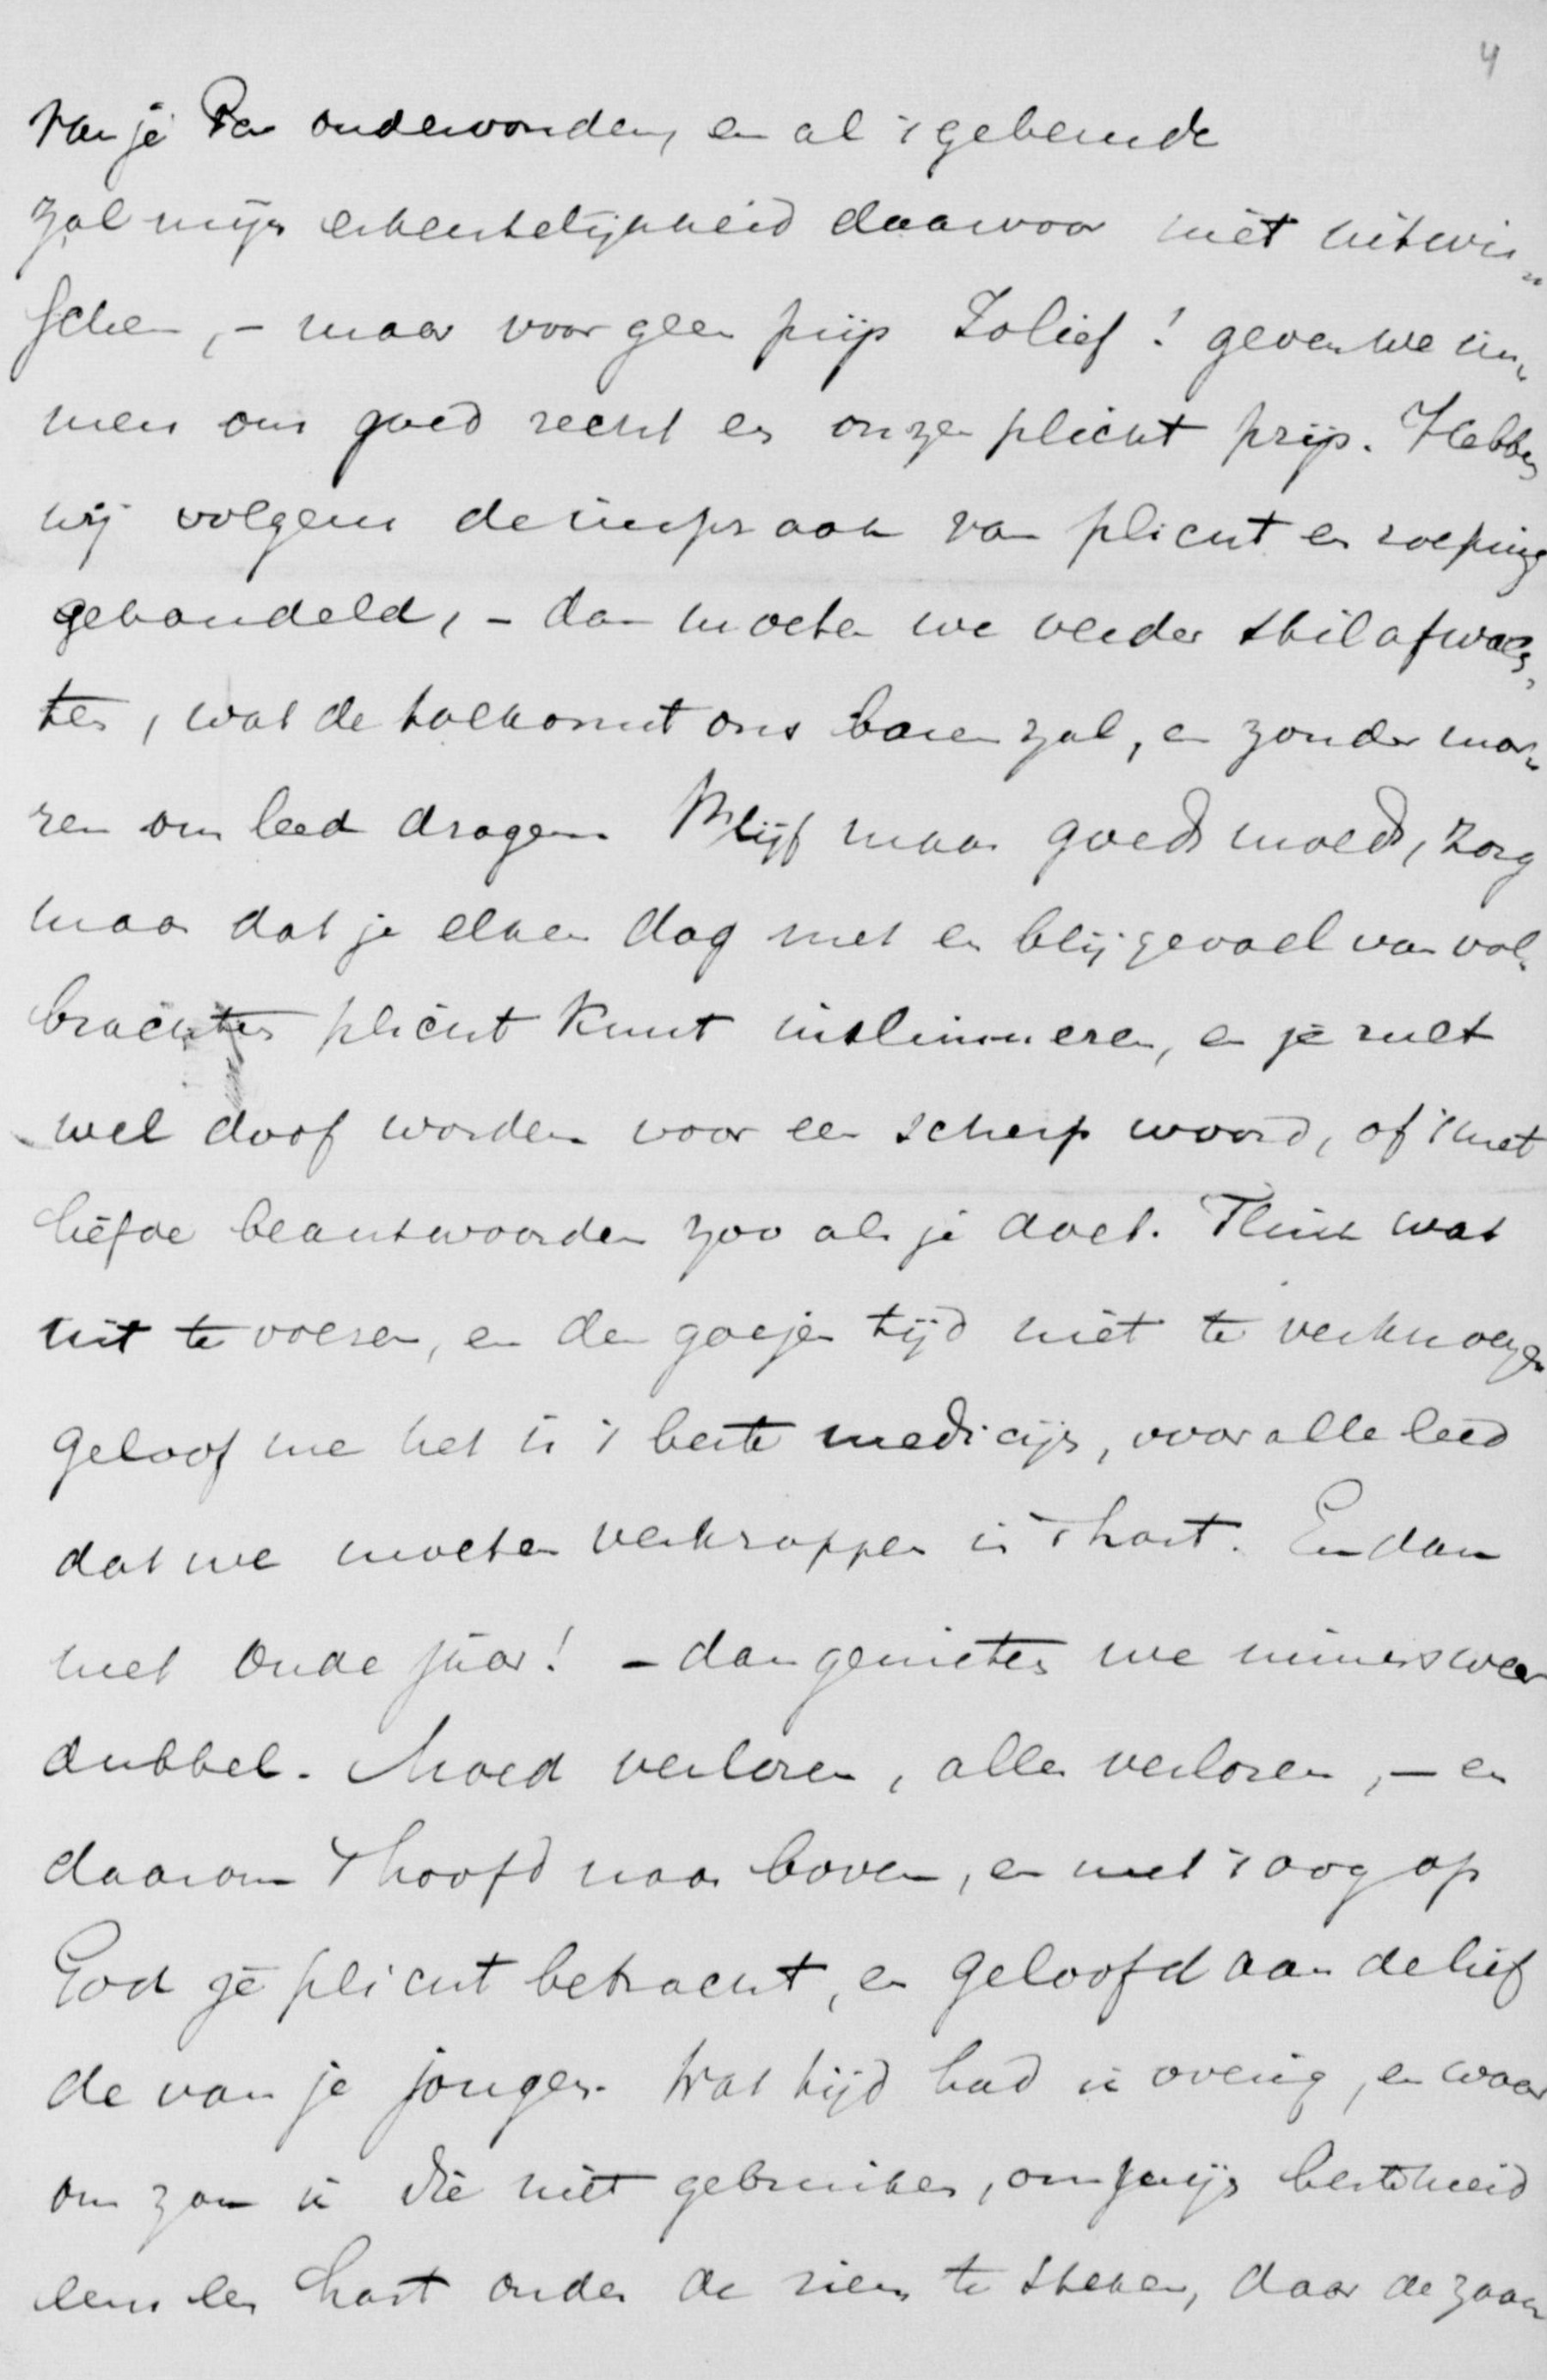 4
van je Pa ondervonden, en al 't gebeurde
zal mijn erkentelijkheid daarvoor niet uitwis„
schen, – maar voor geen prijs Zolief! geven we im„
mers ons goed recht en onzen plicht prijs. Hebben
wij volgens de inspraak van plicht en roeping
gehandeld, – dan moeten we verder stil afwach„
ten, wat de toekomst ons baren zal, en zonder mor„
ren ons leed dragen. Blijf maar goeds moeds, zorg
maar dat je elken dag met een blij gevoel van vol„
brachten plicht kunt insluimeren, en je zult
wel doof worden voor een scherp woord, of 't met
liefde beantwoorden zoo als je doet. Flink wat
uit te voeren, en den goejen tijd niet te verknoejen
geloof me het is 't beste medicijn, voor alle leed
dat we moeten verkroppen in 't hart. En dan
met Oude jaar! – dan genieten we immers weer
dubbel. Moed verloren, alles verloren, – en
daarom 't hoofd naar boven, en met 't oog op
God je plicht betracht, en geloofd aan de lief
de van je jongen. Wat tijd had ik overig, en waar
om zou ik die niet gebruiken, om mijn besteheid
eens een hart onder de riem te steken, daar de zaak